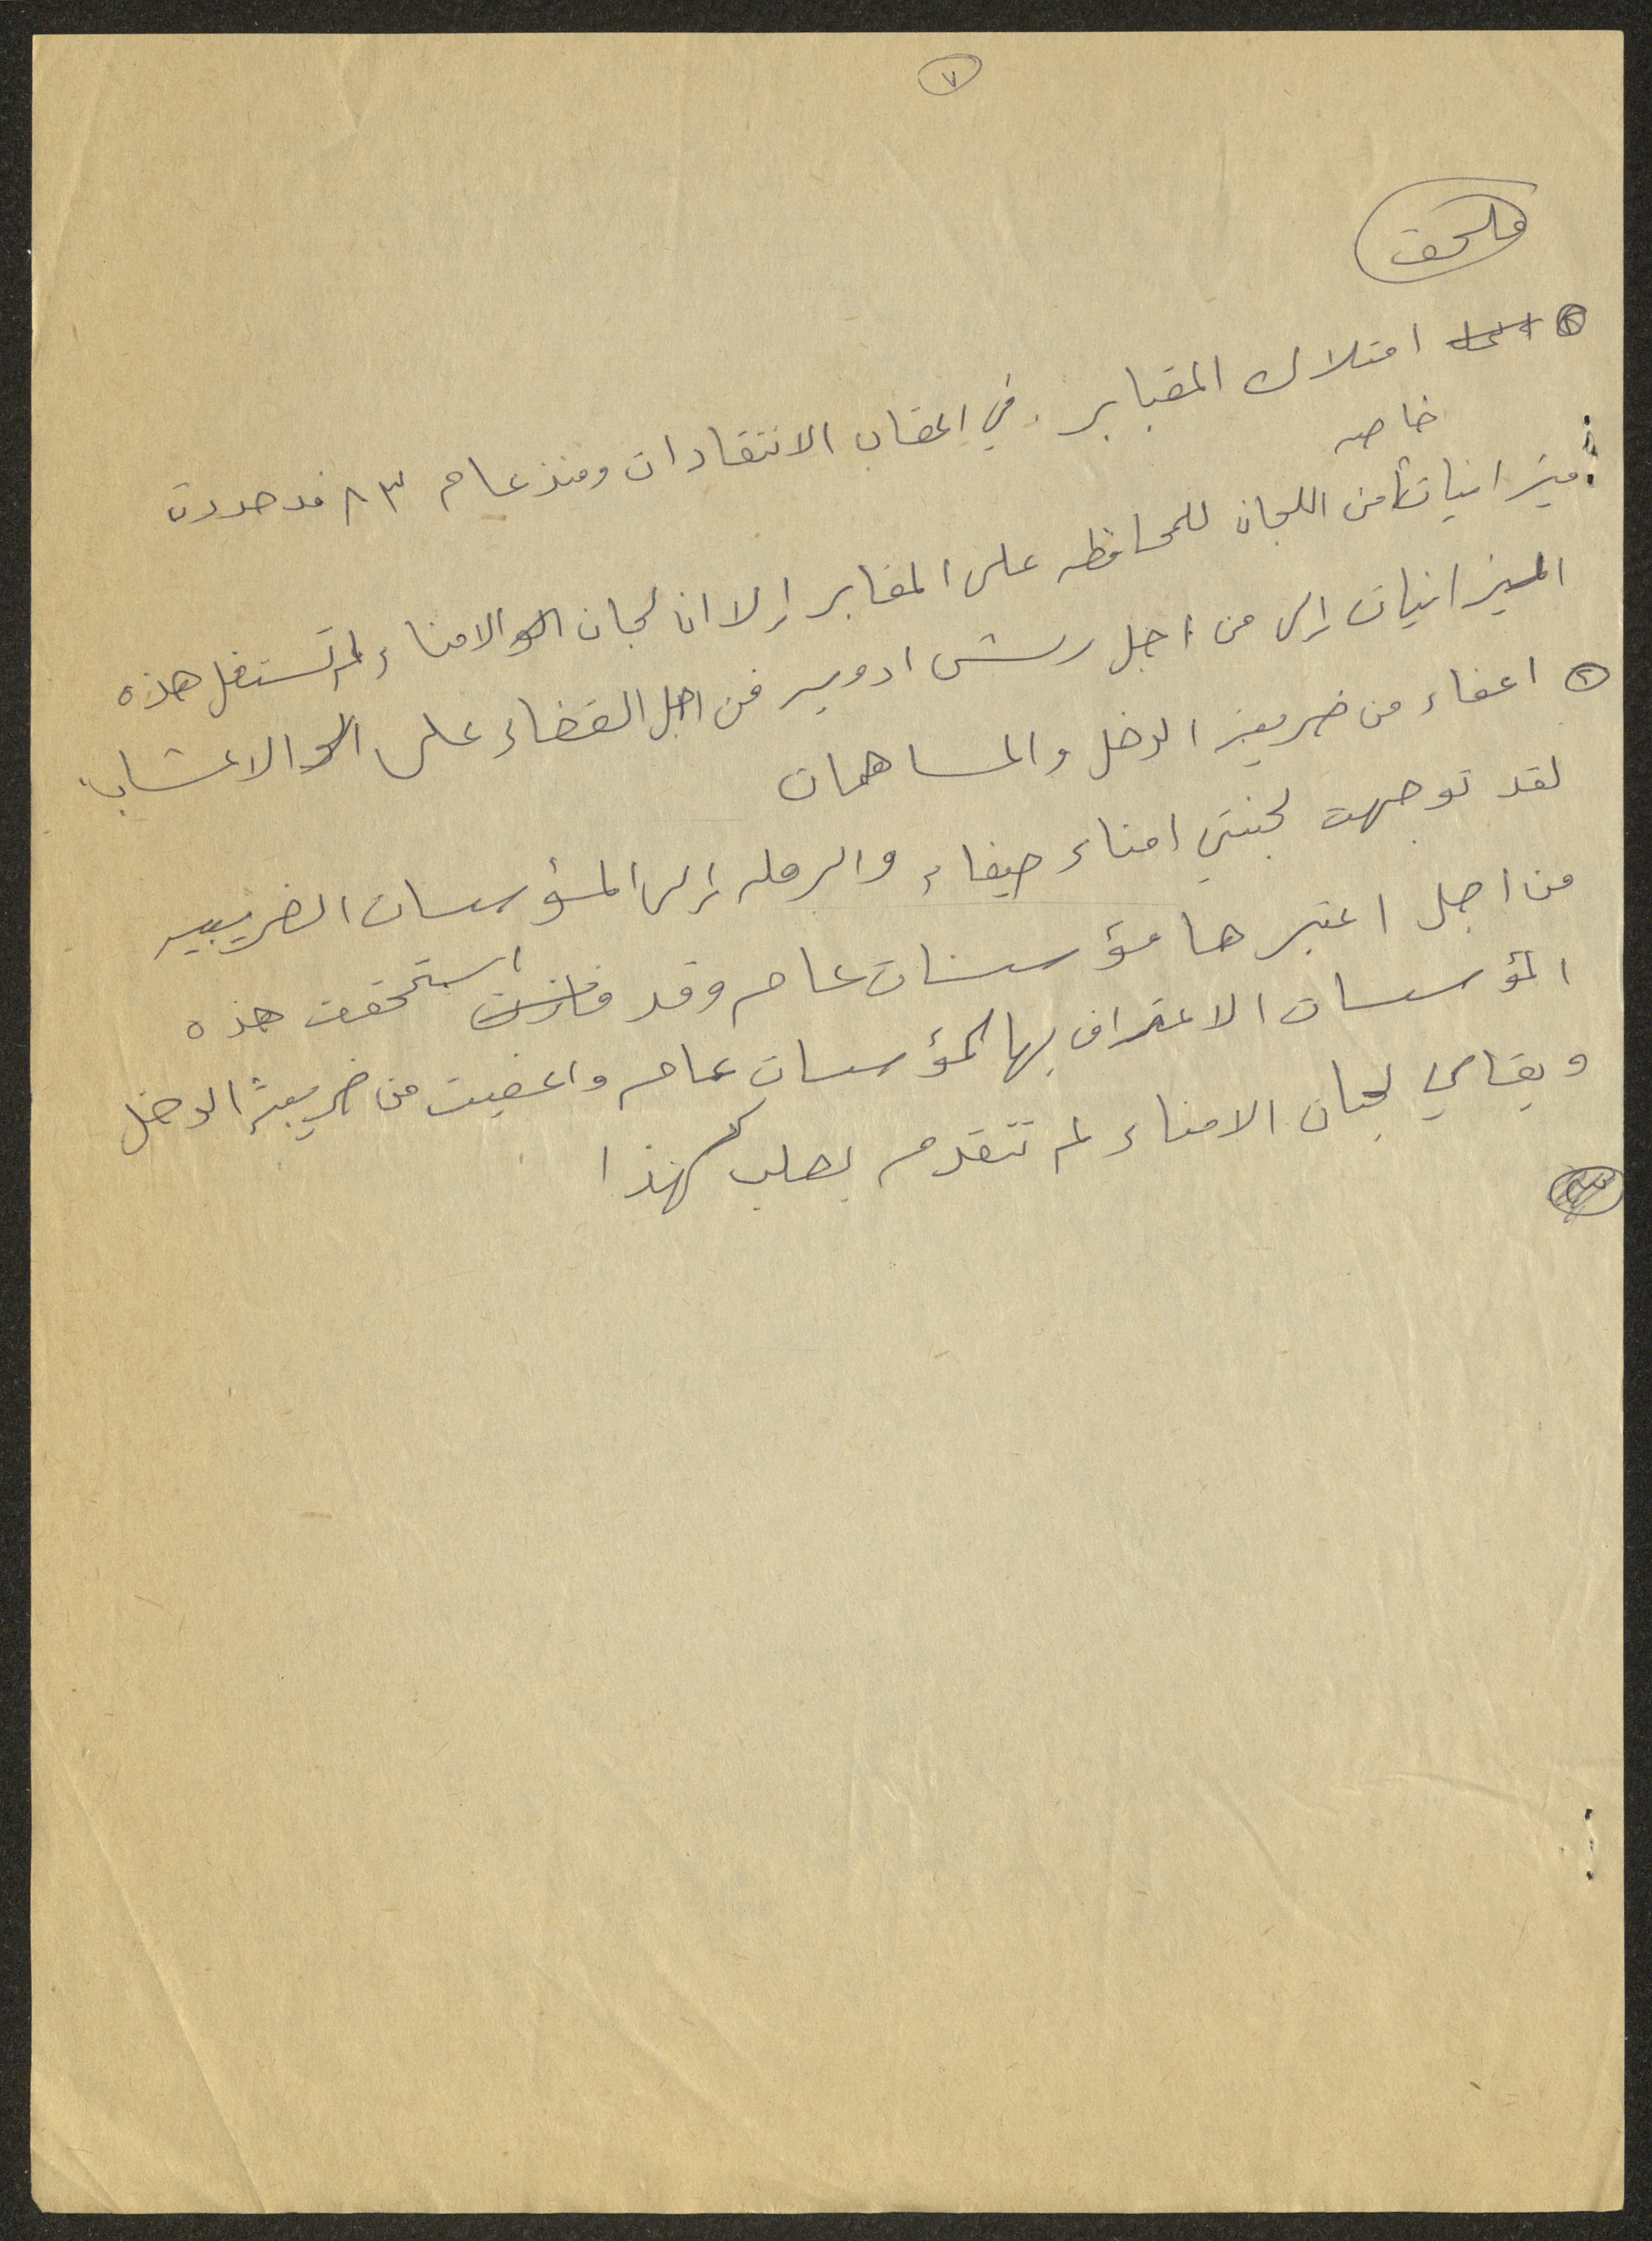 ٧
ملحق
① امتلاك المقبابر. في اعقاب الانتقادات ومنذ عام ٨٣ قد حددت
خاصه
ميزانيات من اللجان للمحافظه على المقابر إلا ان لجان الامناء لم تستغل هذه
الميزانيات إلى من اجل رش ادويه من اجل القضاء على الاعشاب.
② اعفاء من ضريبة الدخل والمساهمات
لقد توجهت لجنتي امناء حيفاء والرمله إلى المؤسسات الضريبيه
من اجل اعتبرها مؤسسات عامه وقد استحقت هذه
المؤسسات الاعتراف بها كمؤسسات عامه واعفيت من ضريبة الدخل
وبقاي لجان الامناء لم تتقدم بطلب كهذا